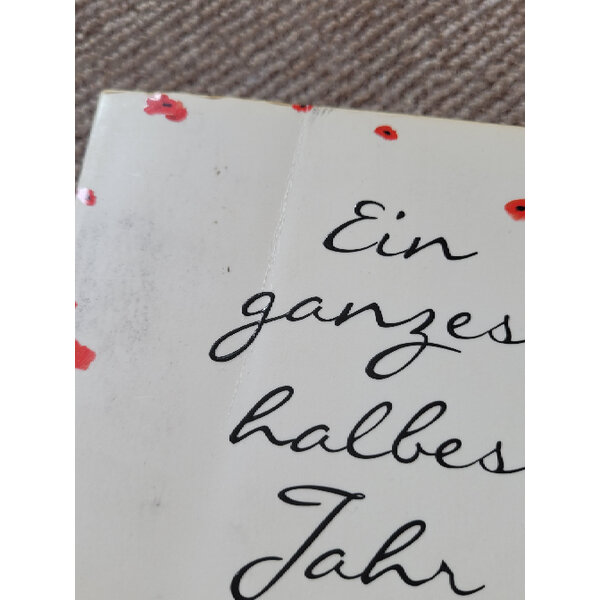 Ein
ganzes
halbes
Jahr